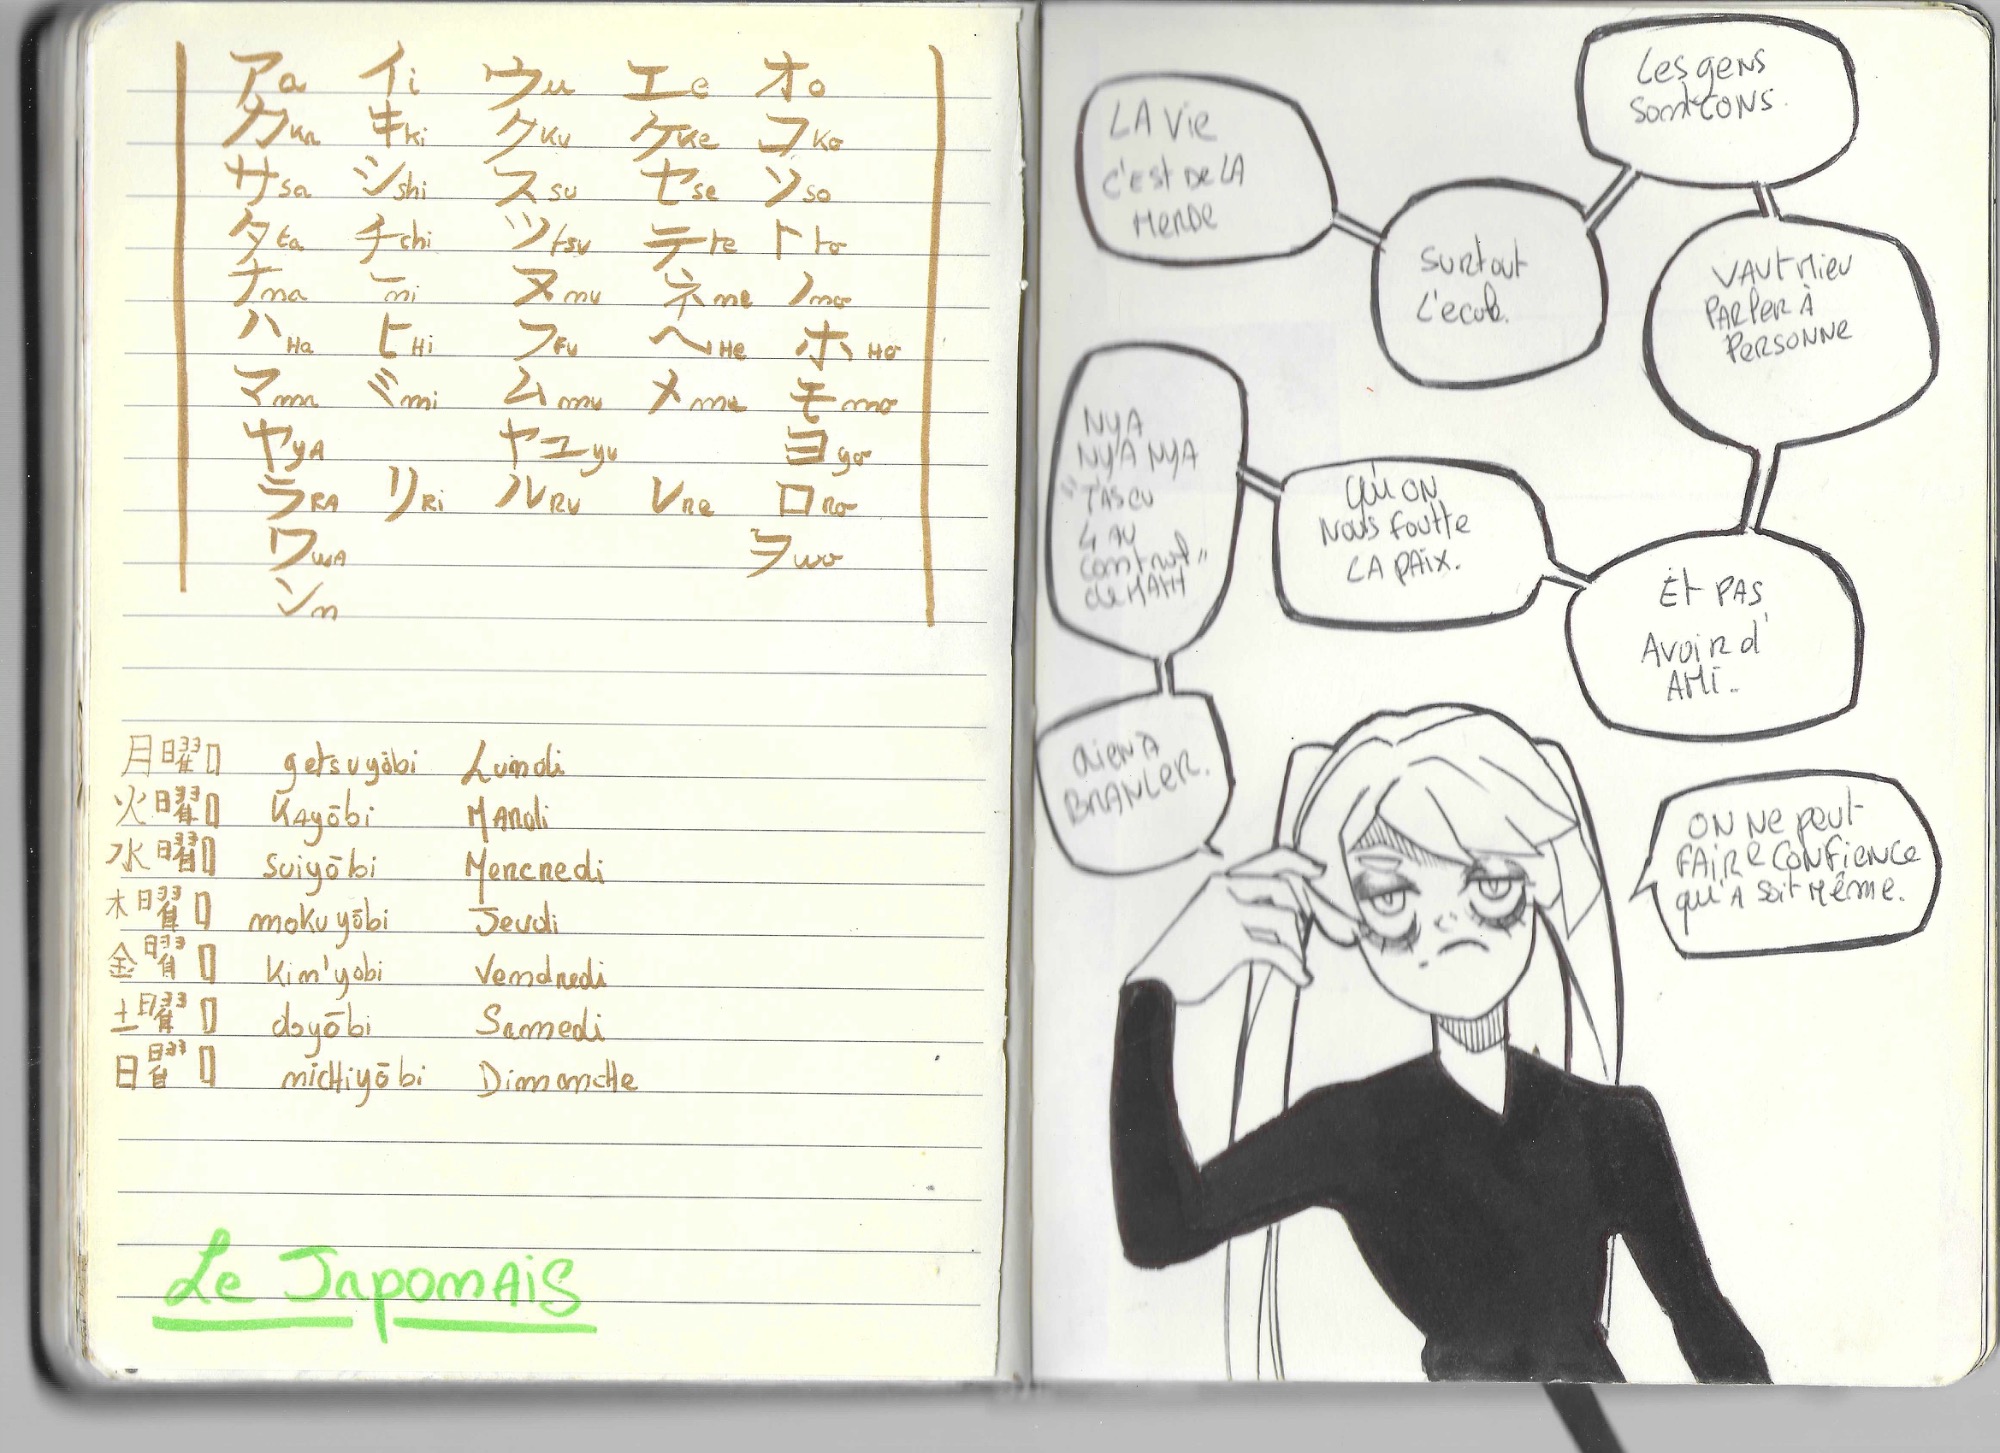 ア a イ i ウ u エ e オ o
カ ka キ ki ク ku ケ ke コ ko
サ sa シ shi ス su セ se ソ so
タ ta チ chi ツ tsu テ te ト to
ナ na ー ni ヌ nu ネ ne ノ no
ハ Ha ヒ Hi フ Fu ヘ He ホ Ho
マ ma ミ mi ム mu メ me モ mo
ヤ YA ヤユ yu ヨ yo
ラ RA リ Ri ル Ru レ Re ロ Ro
ワ wA ヲ wo
ン n
月曜日 getsuyōbi Lundi
火曜日 KAyōbi MARdi
水曜日 suiyōbi Mercredi
木曜日 mokuyōbi Jeudi
金曜日 Kin'yobi Vendredi
土曜日 doyōbi Samedi
日曜日 nichiyōbi Dimanche
Le JAponAiS
LA Vie
C'Est De LA
MeRDe
SURtout
L'ecole.
Les gens
sont CONS.
VAUt Mieu
PARler À
PeRSONNe
Et PAS
Avoir d'
AMi.
QU'ON
Nous foutte
LA PAix.
NYA
NYA NYA
"T'As eu
4 au
control"
de MAtH
Rien À
BRANLeR.
ON Ne peut
FAIRe CONFieNCe
qu'A soit Même.